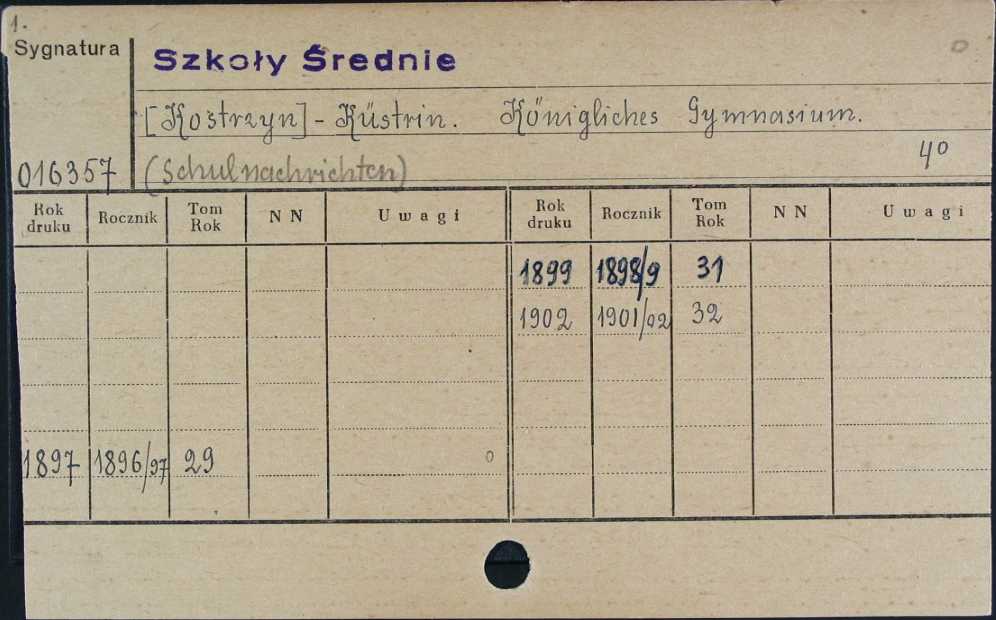 1.
Sygnatura
Szkoły Średnie
[Kostrzyn] - Küstrin. Königliches Gymnasium.
4º
016357 (Schulnachrichten)
Rok druku Rocznik Tom Rok N N Uwagi Rok druku Rocznik Tom Rok N N Uwagi
1899 1898/9 31
1902 1901/02 32
1897 1896/97 29